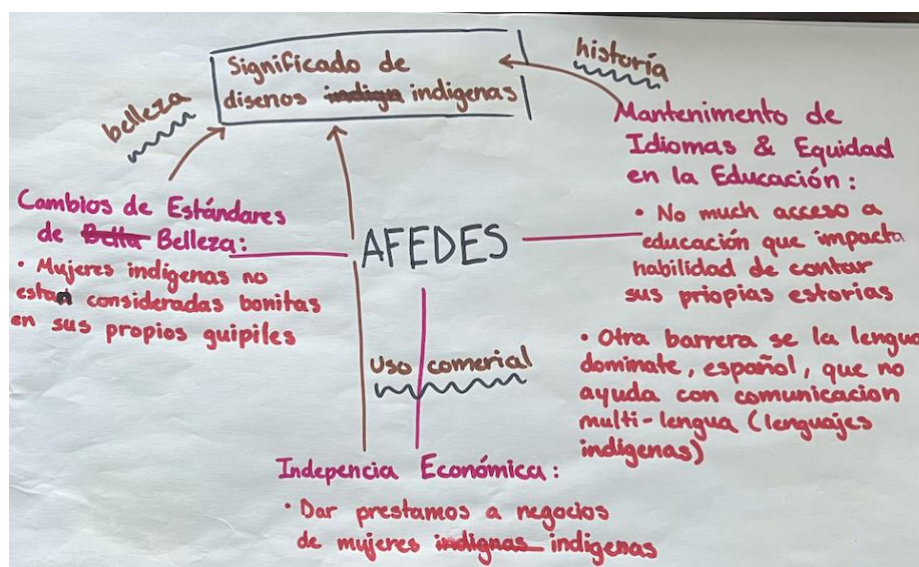 Significado de
disenos indigenas
belleza
historía
Cambios de Estándares
de Belleza:
• Mujeres indígenas no
estan consideradas bonitas
en sus propios guipiles
AFEDES
Mantenimento de
Idiomas & Equidad
en la Educación:
• No much acceso a
educación que impacta
habilidad de contar
sus priopias estorias
• Otra barrera se la lengua
dominate, español, que no
ayuda con comunicacion
multi-lengua (lenguajes
indígenas)
Uso comerial
Indepencia Económica:
• Dar prestamos a negocios
de mujeres indigenas